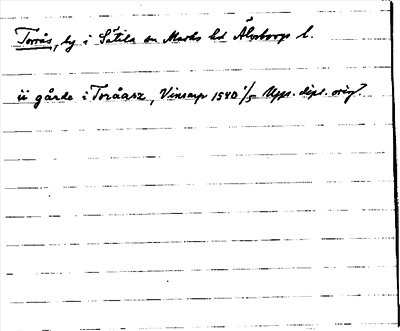 Torrås, by i Sätila sn Marks hd Älvsborgs l.
ii gårde i Toråasz, Vinsarp 1540 1/5 Upps. dipl. orig.